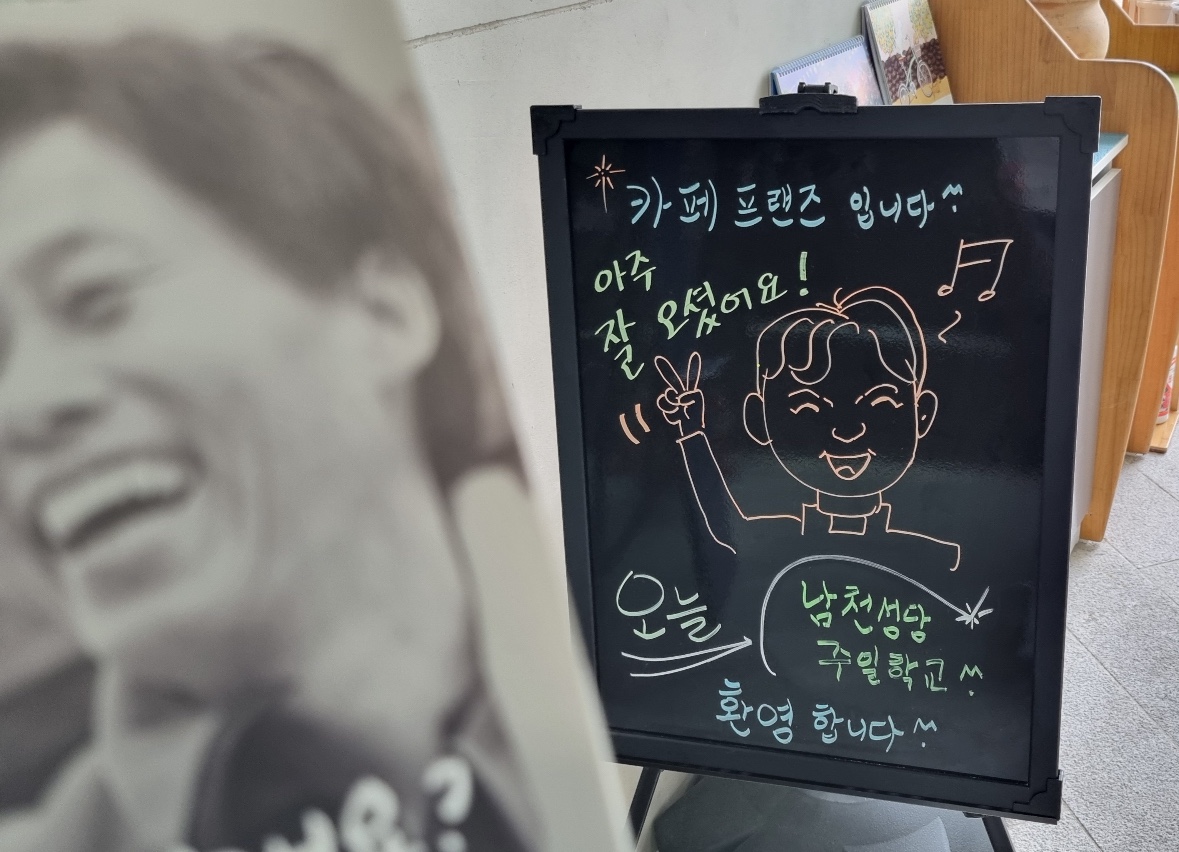 카페 프랜즈 입니다^^
아주
잘 오셨어요!
오늘
남천성당
주일학교^^
환영 합니다^^